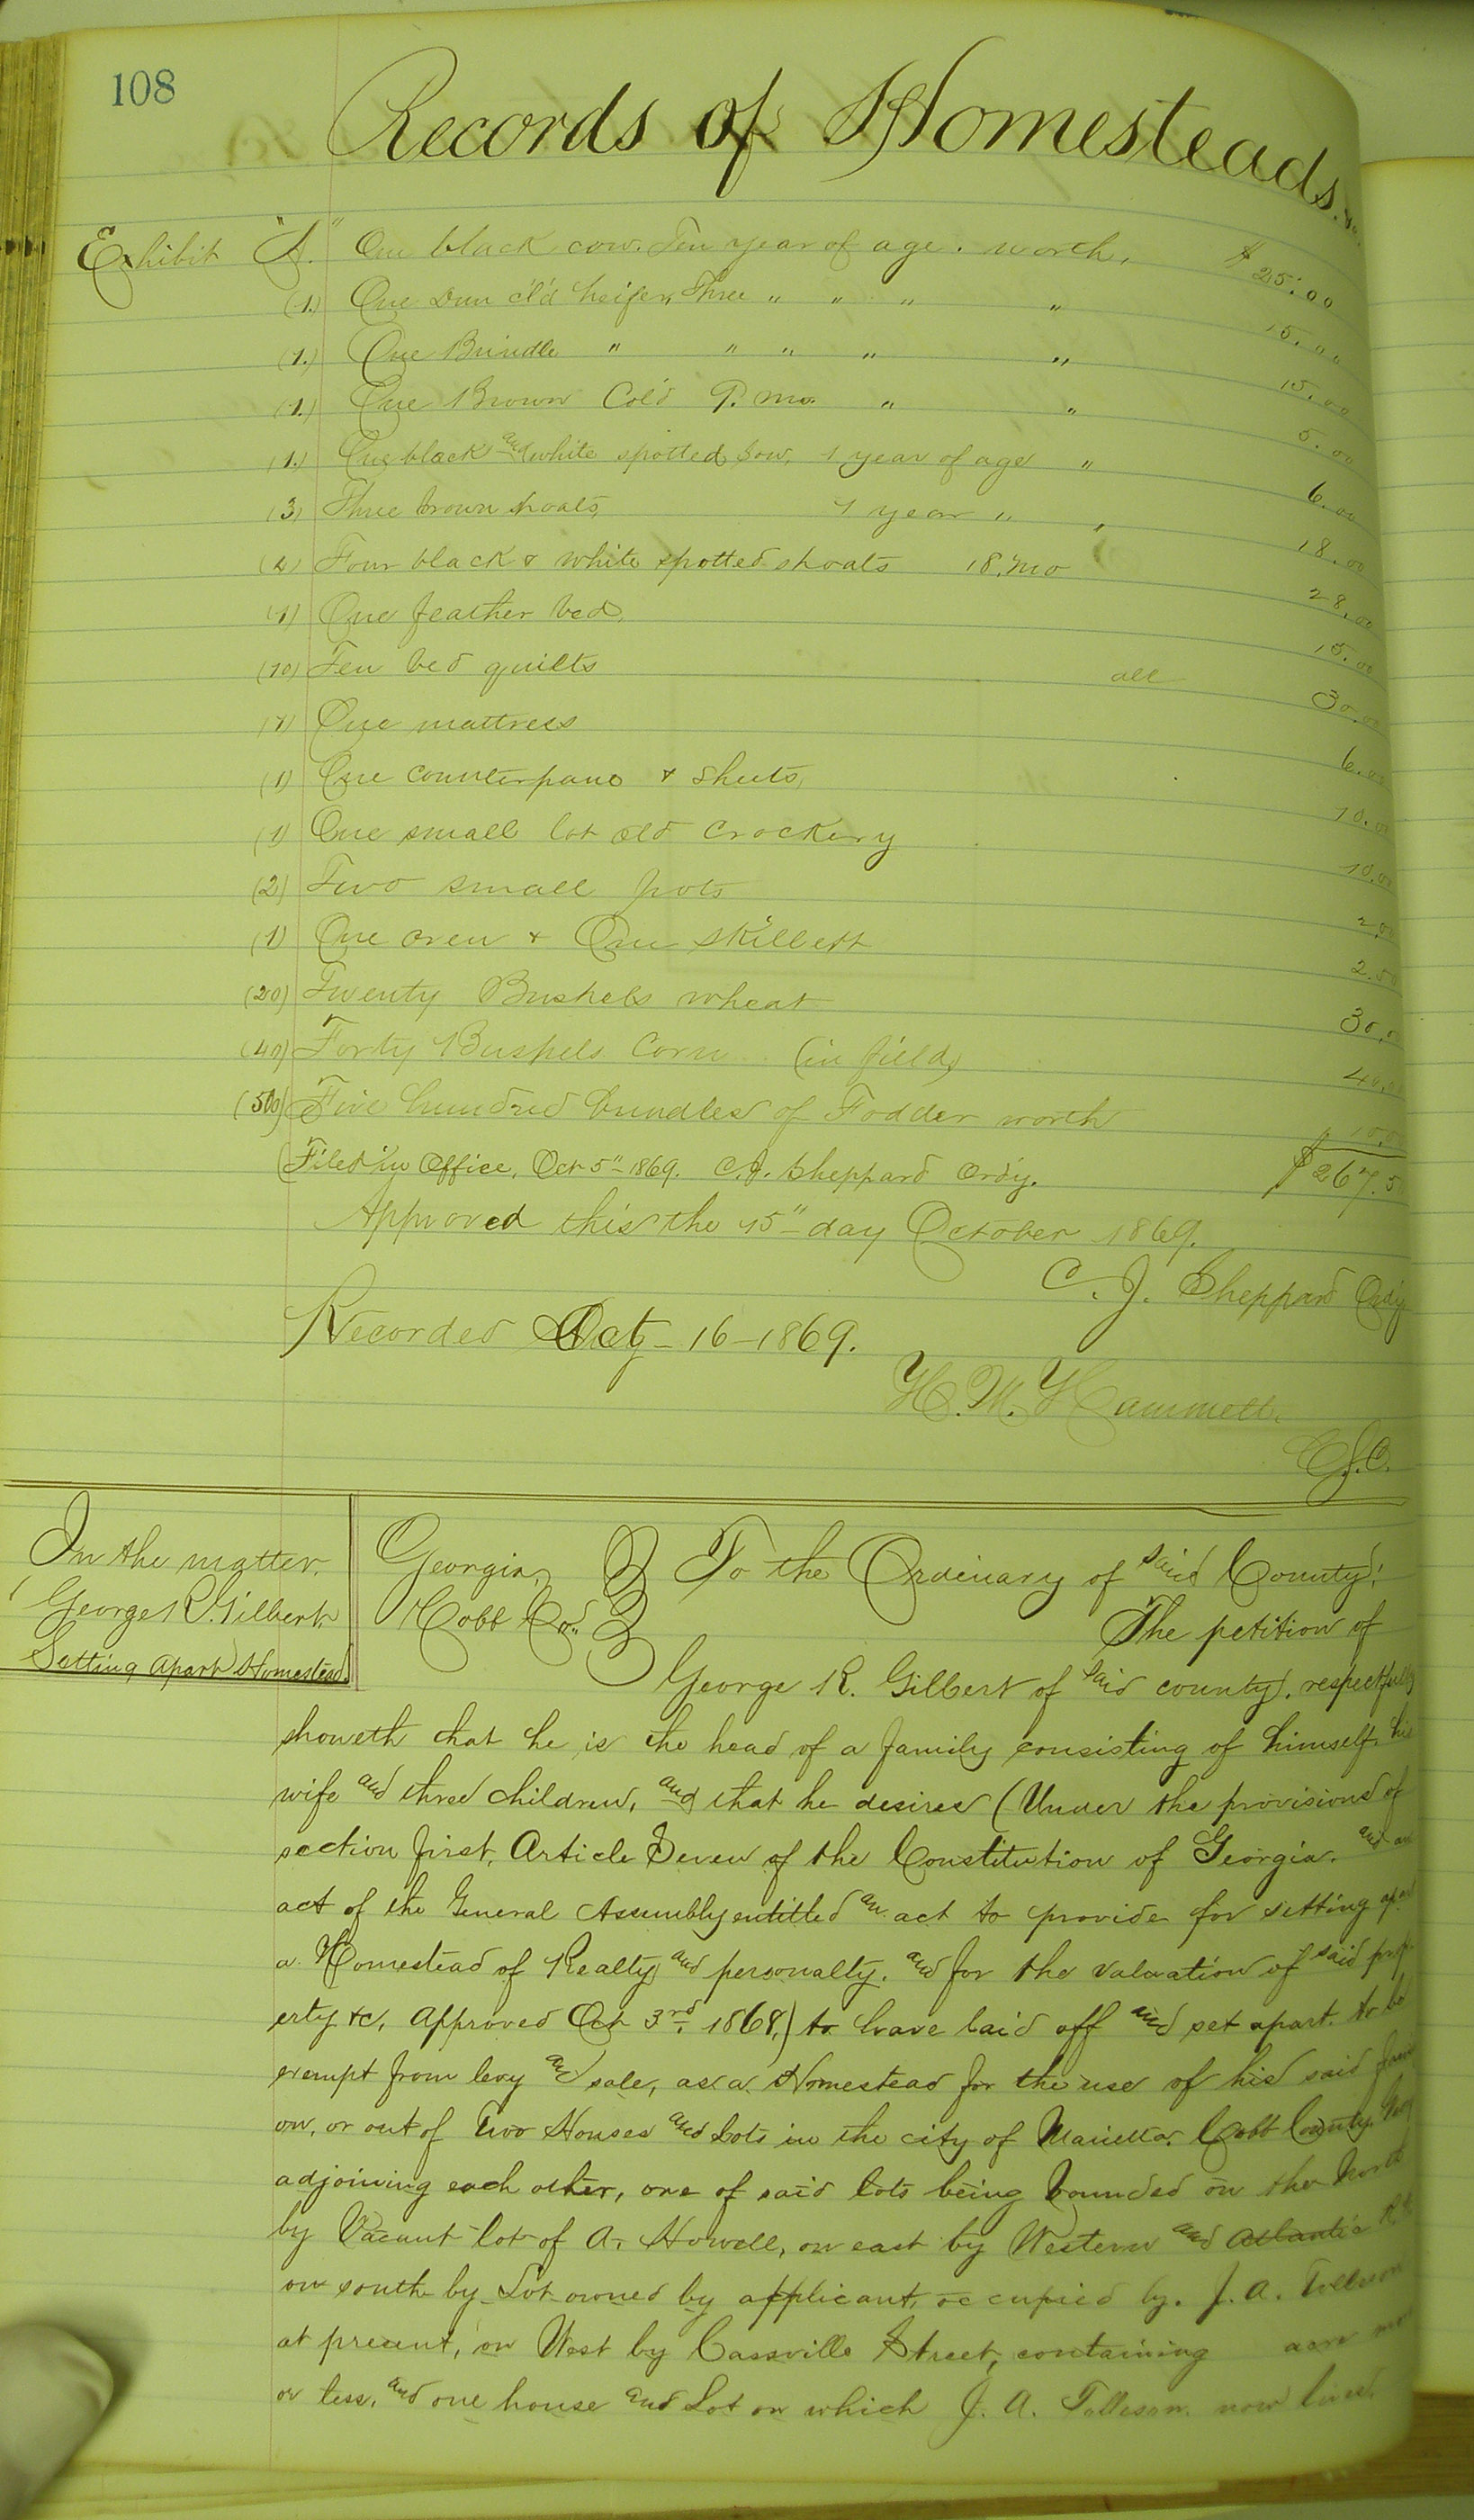 108
Records of Homesteads.
Exhibit "A." One black cow. Ten year of age. worth, $25.00
(1.) One Dun cl'd heifer, Three " " " " 15.00
(1.) One Brindle " " " " " 15.00
(1.) One Brown Col'd 9. mo. " " 5.00
(1.) One black and white spotted sow, 1 year of age " 6.00
(3) Three brown shoats, 1 year " " 18.00
(4) Four black & white spotted shoats 18. mo 28.00
(1) One feather bed, 15.00
(10) Ten bed quilts all 30.00
(1) One mattress 6.00
(1) One counterpane & sheets, 10.00
(1) One small lot old crockery 10.00
(2) Two small pots 2.00
(1) One oven & One skillett 2.50
(20) Twenty Bushels wheat 30.0
(40) Forty Bushels Corn (in field) 40.00
(500) Five hundred bundles of Fodder worth 10.00
(Filed in Office, Oct 5" 1869. C. J. Sheppard Ordy. $267.5
Approved this the 15" day October 1869.
C. J. Sheppard Ordy
Recorded Oct - 16 - 1869.
H. M. Hammett.
C.S.C.
In the matter.
George R. Gilbert,
Setting apart Homestead.
Georgia, To the Ordinary of said County:
Cobb Co. The petition of
George R. Gilbert of said county, respectfully
showeth that he is the head of a family consisting of himself, his
wife and three children, and that he desires (Under the provisions of
section first, Article Seven of the Constitution of Georgia. and an
act of the General Assembly entitled an act to provide for setting apart
a Homestead of Realty and personalty. and for the valuation of said prop-
erty &c, approved Oct 3rd 1868,) to have laid off and set apart. to be
exempt from levy and sale, as a Homestead for the use of his said
on, or out of Two Houses and Lots in the city of Marietta. Cobb County
adjoining each other, one of said lots being bounded on the North
by Vacant lot of A. Howell, on east by Western and Atlantic R.R.
on south by Lot owned by applicant, occupied by. J. A. Tolleson
at present, on West by Cassville Street, containing acre more
or less, and one house and Lot on which J. A. Tolleson. now lives.